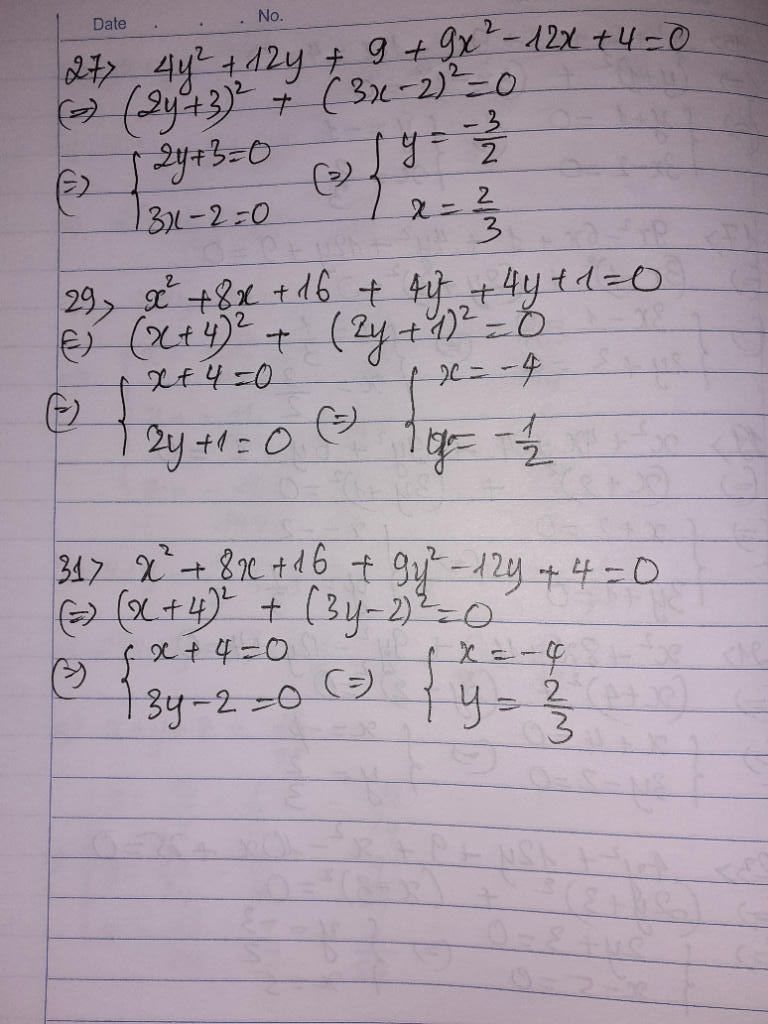 Date . . . No.
27> 4y² + 12y + 9 + 9x² - 12x + 4 = 0
(=) (2y+3)² + (3x-2)² = 0
(=) { 2y+3=0 (=) { y = -3/2
3x-2=0 x = 2/3
29> x² + 8x + 16 + 4y² + 4y + 1 = 0
(=) (x+4)² + (2y+1)² = 0
(=) { x+4=0 (=) { x = -4
2y+1=0 y = -1/2
31> x² + 8x + 16 + 9y² - 12y + 4 = 0
(=) (x+4)² + (3y-2)² = 0
(=) { x+4=0 (=) { x = -4
3y-2=0 y = 2/3